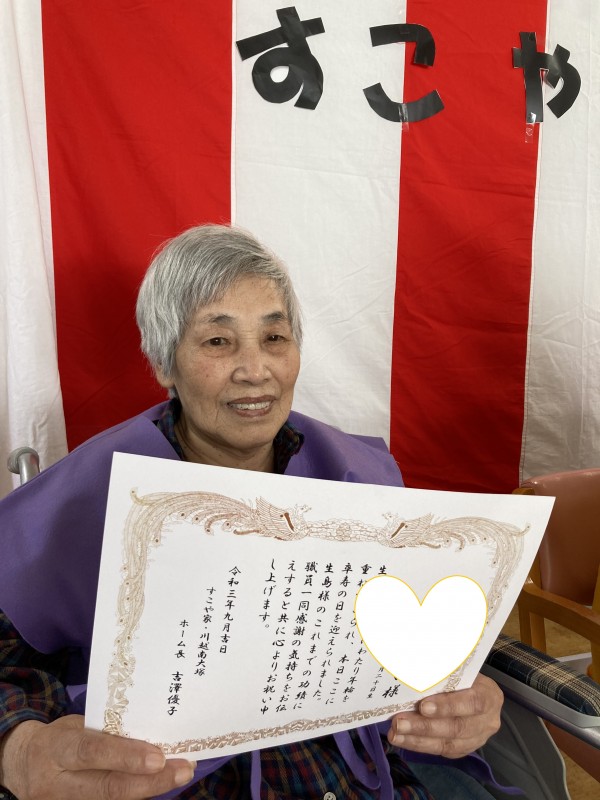 すこや
生 様
月二十日生
重ね られ、 わたり年輪を
卒寿の日を迎えられました。 本日ここに
生島様のこれまでの功績に
職員一同感謝の気持ちをお伝
えすると共に心よりお祝い申
し上げます。
令和三年九月吉日
すこや家・川越南大塚
ホーム長 吉澤優子